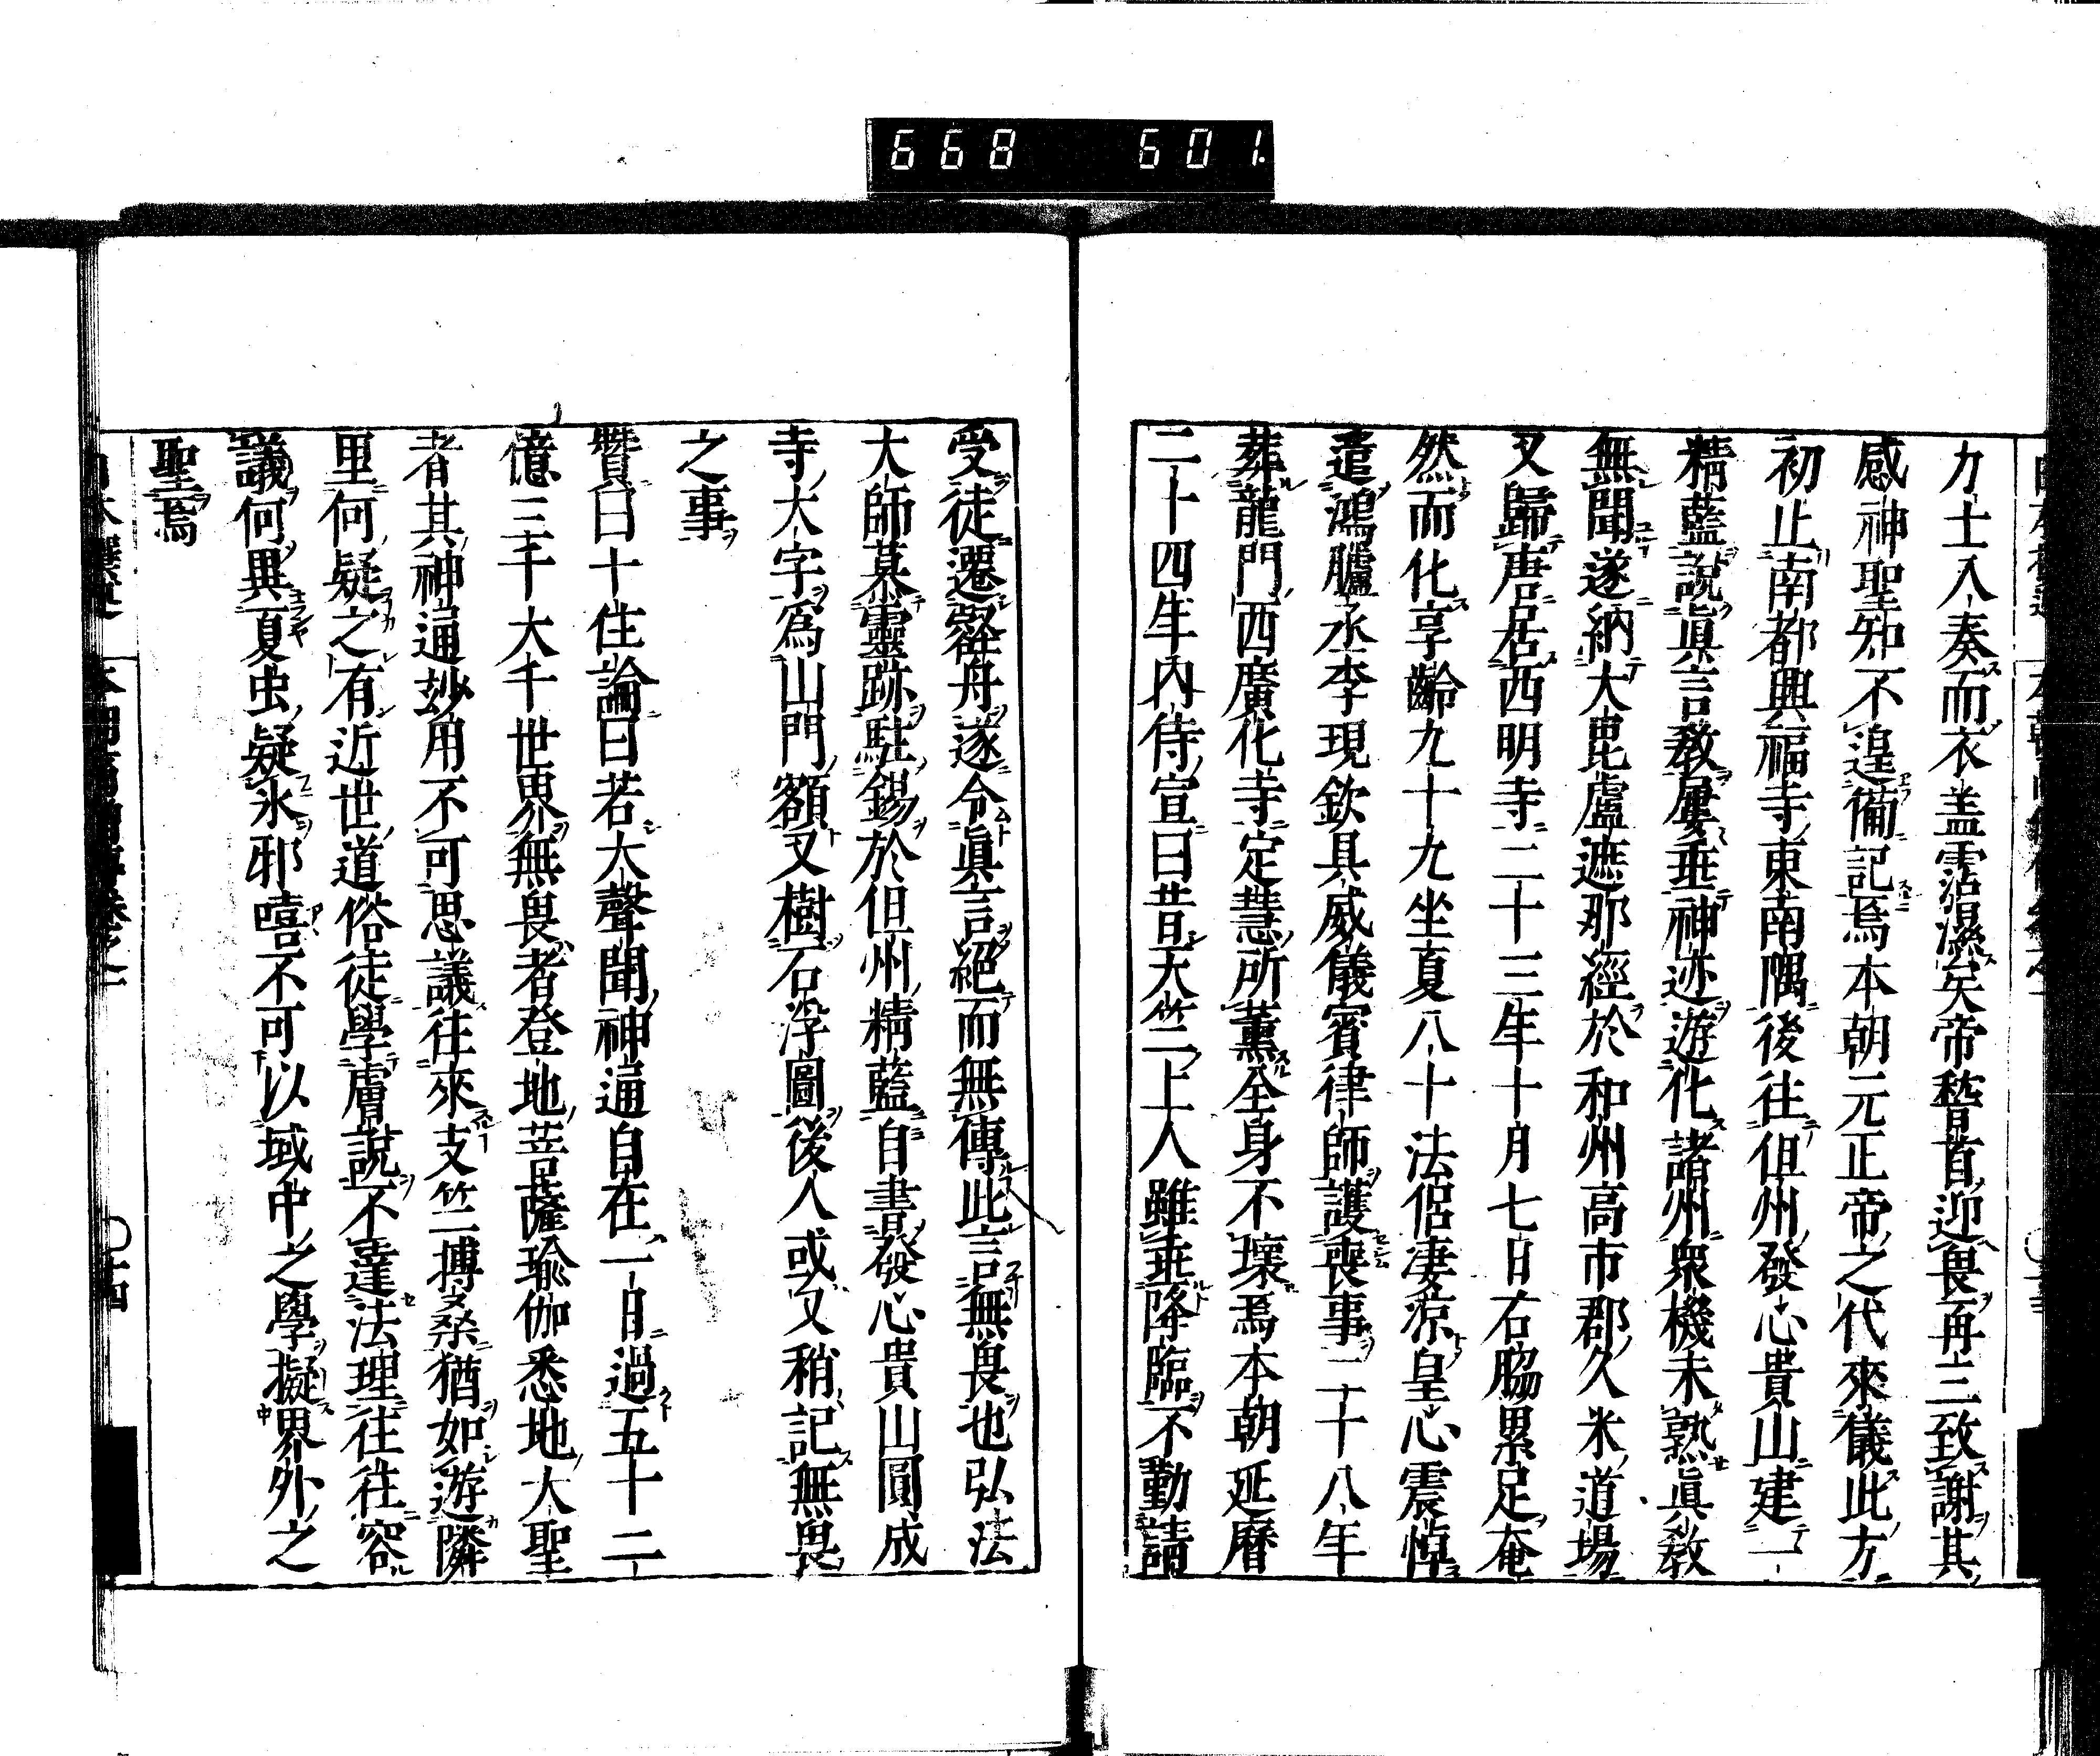 668 601
力士入奏而衣盖霑濕矣帝稽首迎畏再三致謝其
感神聖知不遑備記焉本朝元正帝之代來儀此方
初止南都興福寺東南隅後往但州發心貴山建一
精藍說眞言教屢垂神迹遊化諸州衆機未熟眞教
無聞遂納大毘盧遮那經於和州高市郡久米道場
又歸唐居西明寺二十三年十月七日右脇累足奄
然而化享齡九十九坐夏八十法侶凄凉皇心震悼
遣鴻臚丞李現欽具威儀賓律師護喪事二十八年
葬龍門西廣化寺定慧所薰全身不壞焉本朝延曆
二十四年內侍宣曰昔天竺上人雖垂降臨不勤請
受徒遷壑舟遂令眞言絕而無傳此言無畏也弘法
大師慕靈跡駐錫於但州精藍自書發心貴山圓成
寺大字爲山門額又樹石浮圖後人或又稍記無畏
之事
贊曰十住論曰若大聲聞神通自在一日過五十二
億三千大千世界無畏者登地菩薩瑜伽悉地大聖
者其神通妙用不可思議往來支竺搏桑猶如遊隣
里何疑之有近世道俗徒學膚說不達法理往往容
議何異夏虫疑氷邪嘻不可以域中之學擬界外之
聖焉